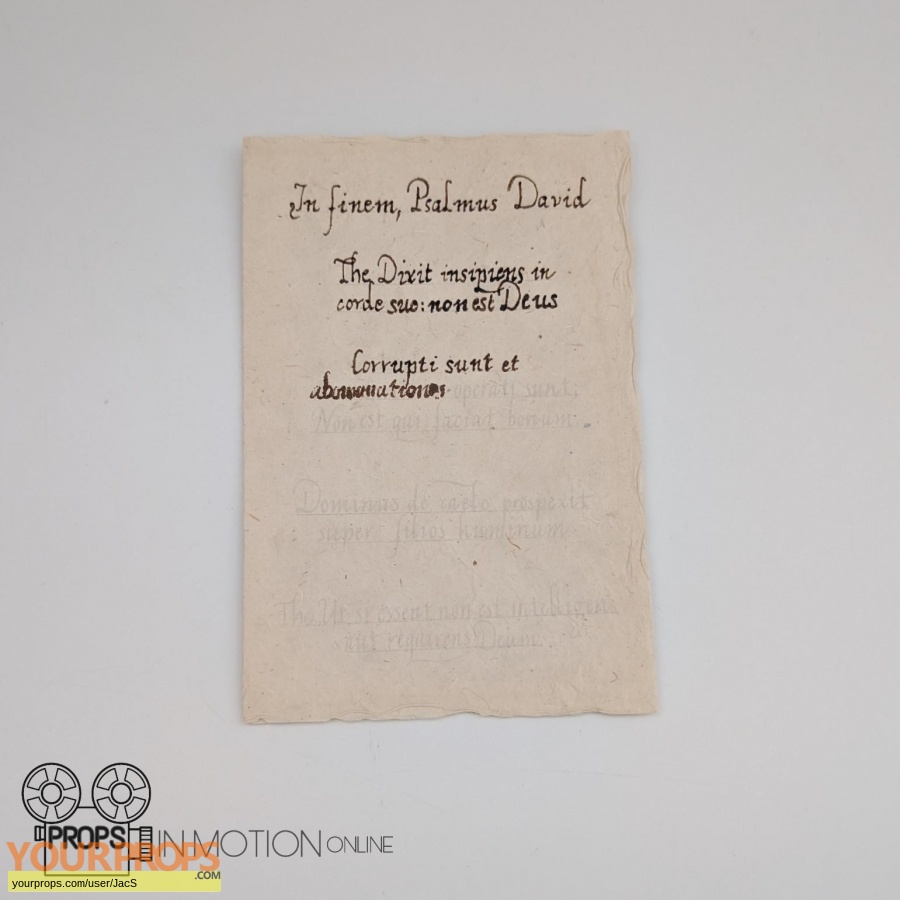 In finem, Psalmus David
The Dixit insipiens in
corde suo: non est Deus
Corrupti sunt et
abominationes operati sunt:
Non est qui faciat bonum.
Dominus de caelo prospexit
super filios hominum
The Ut si essent non est intelligens
aut requirens Deum.
PROPS IN MOTION ONLINE
YOURPROPS
.COM
yourprops.com/user/JacS